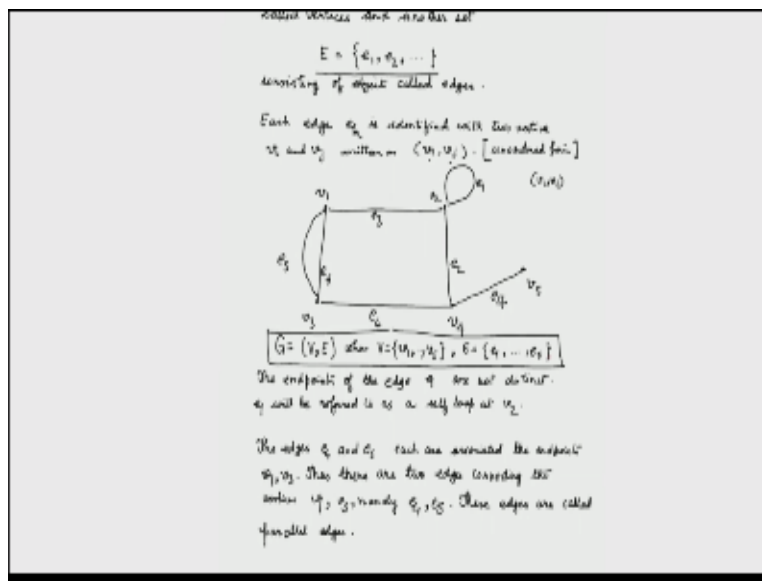 called vertices and another set
E = {e₁, e₂, ...}
consisting of object called edges.
Each edge eₖ is identified with two vertices
vᵢ and vⱼ written as (vᵢ, vⱼ). [unordered pair]
e₁
(v₁,v₁)
v₁
v₂
e₃
e₅
e₄
e₂
e₇
v₅
v₃
e₆
v₄
G = (V, E) where V = {v₁, .., v₅}, E = {e₁, ..., e₇}
The endpoints of the edge e₁ are not distinct.
e₁ will be referred to as a self loop at v₂.
The edges e₄ and e₅ each are associated the endpoint
v₁, v₃. Thus there are two edge the
vertices v₁, v₃, namely e₄, e₅. These edges are called
parallel edges.